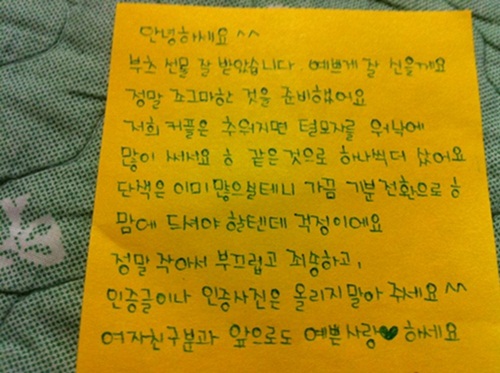 안녕하세요 ^^
부츠 선물 잘 받았습니다 예쁘게 잘 신을게요
정말 죠그마한 것을 준비했어요
저희 커플은 추워지면 털모자를 워낙에
많이 써서요 ㅎ 같은 것으로 하나씩 더 샀어요
단색은 이미 많으실테니 가끔 기분전환으로 ㅎ
맘에 드셔야 할텐데 걱정이에요
정말 작아서 부끄럽고 죄송하고,
인증글이나 인증사진은 올리지 말아 주세요 ^^
여자친구분과 앞으로도 예쁜사랑♥ 하세요